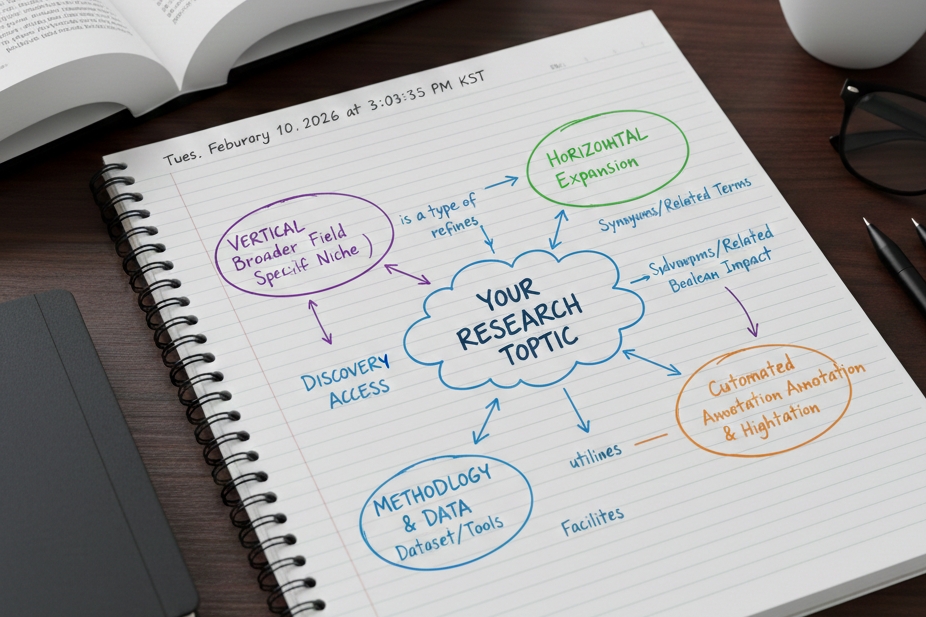 Tues. Feburary 10, 2026 at 3:03:35 PM KST
HORIZOUNTAL
Expansion
is a type of
refines
VERTICAL
Broader Field
Specilif Niche )
Synoyums/Related Terms
Sydvorpms/Related
Bealcan Impact
YOUR
RESEARCH
TOPTIC
DISCOVERY
ACCESS
Cutomated
Anotation Anotation
& Hightation
utilines
METHODLOGY
& DATA
Dataset/Tools
Facilites